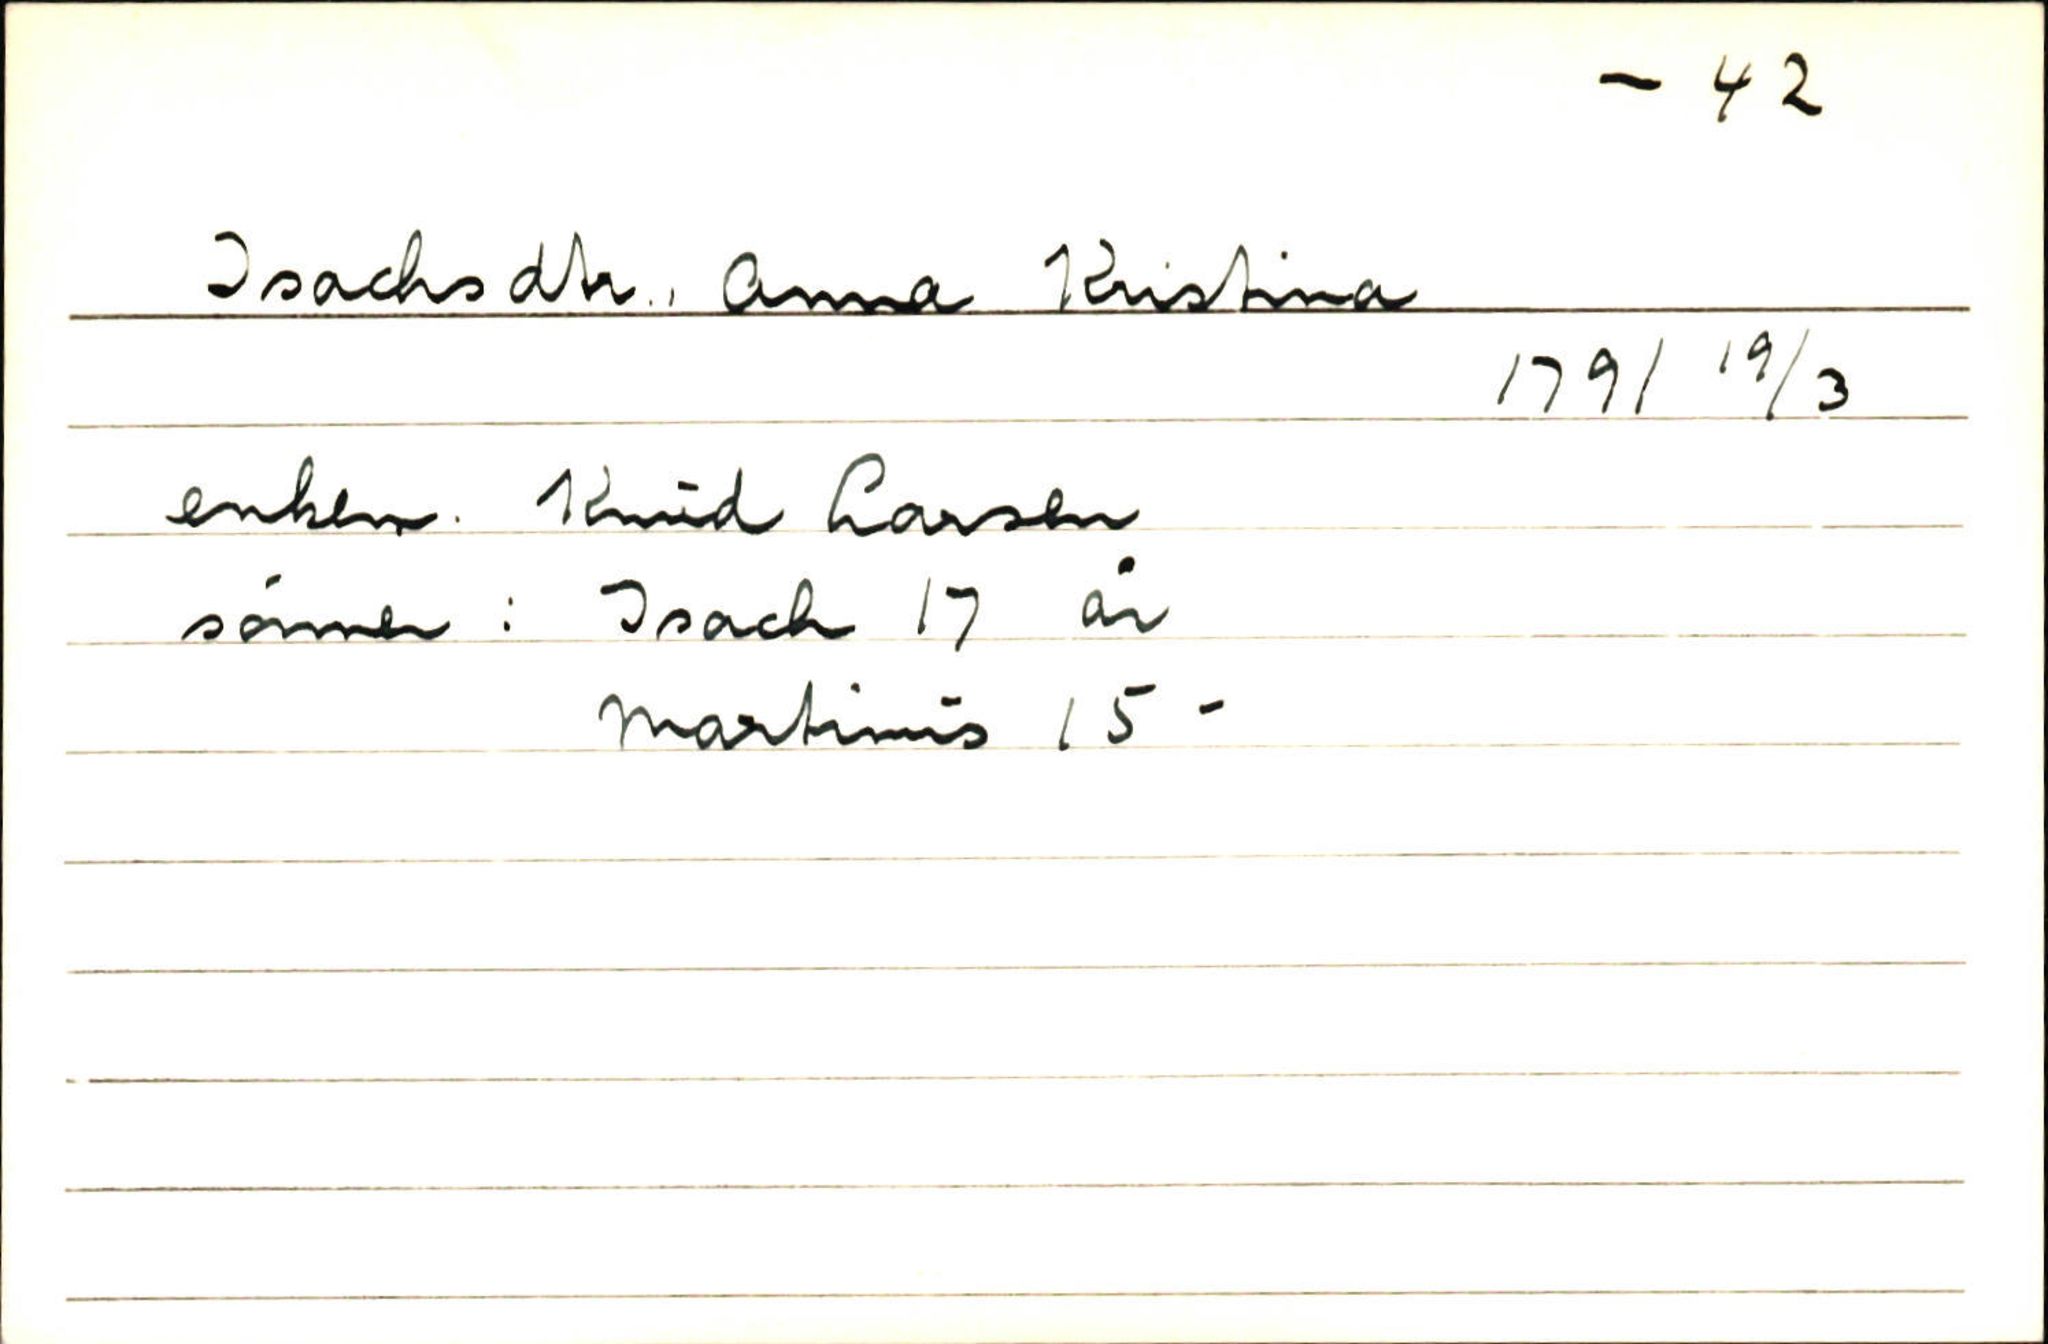 - 42
Isachsdtr., Anna Kristina
1791 19/3
enkem. Knud Larsen
sönner : Isach 17 år
Martinus 15 -